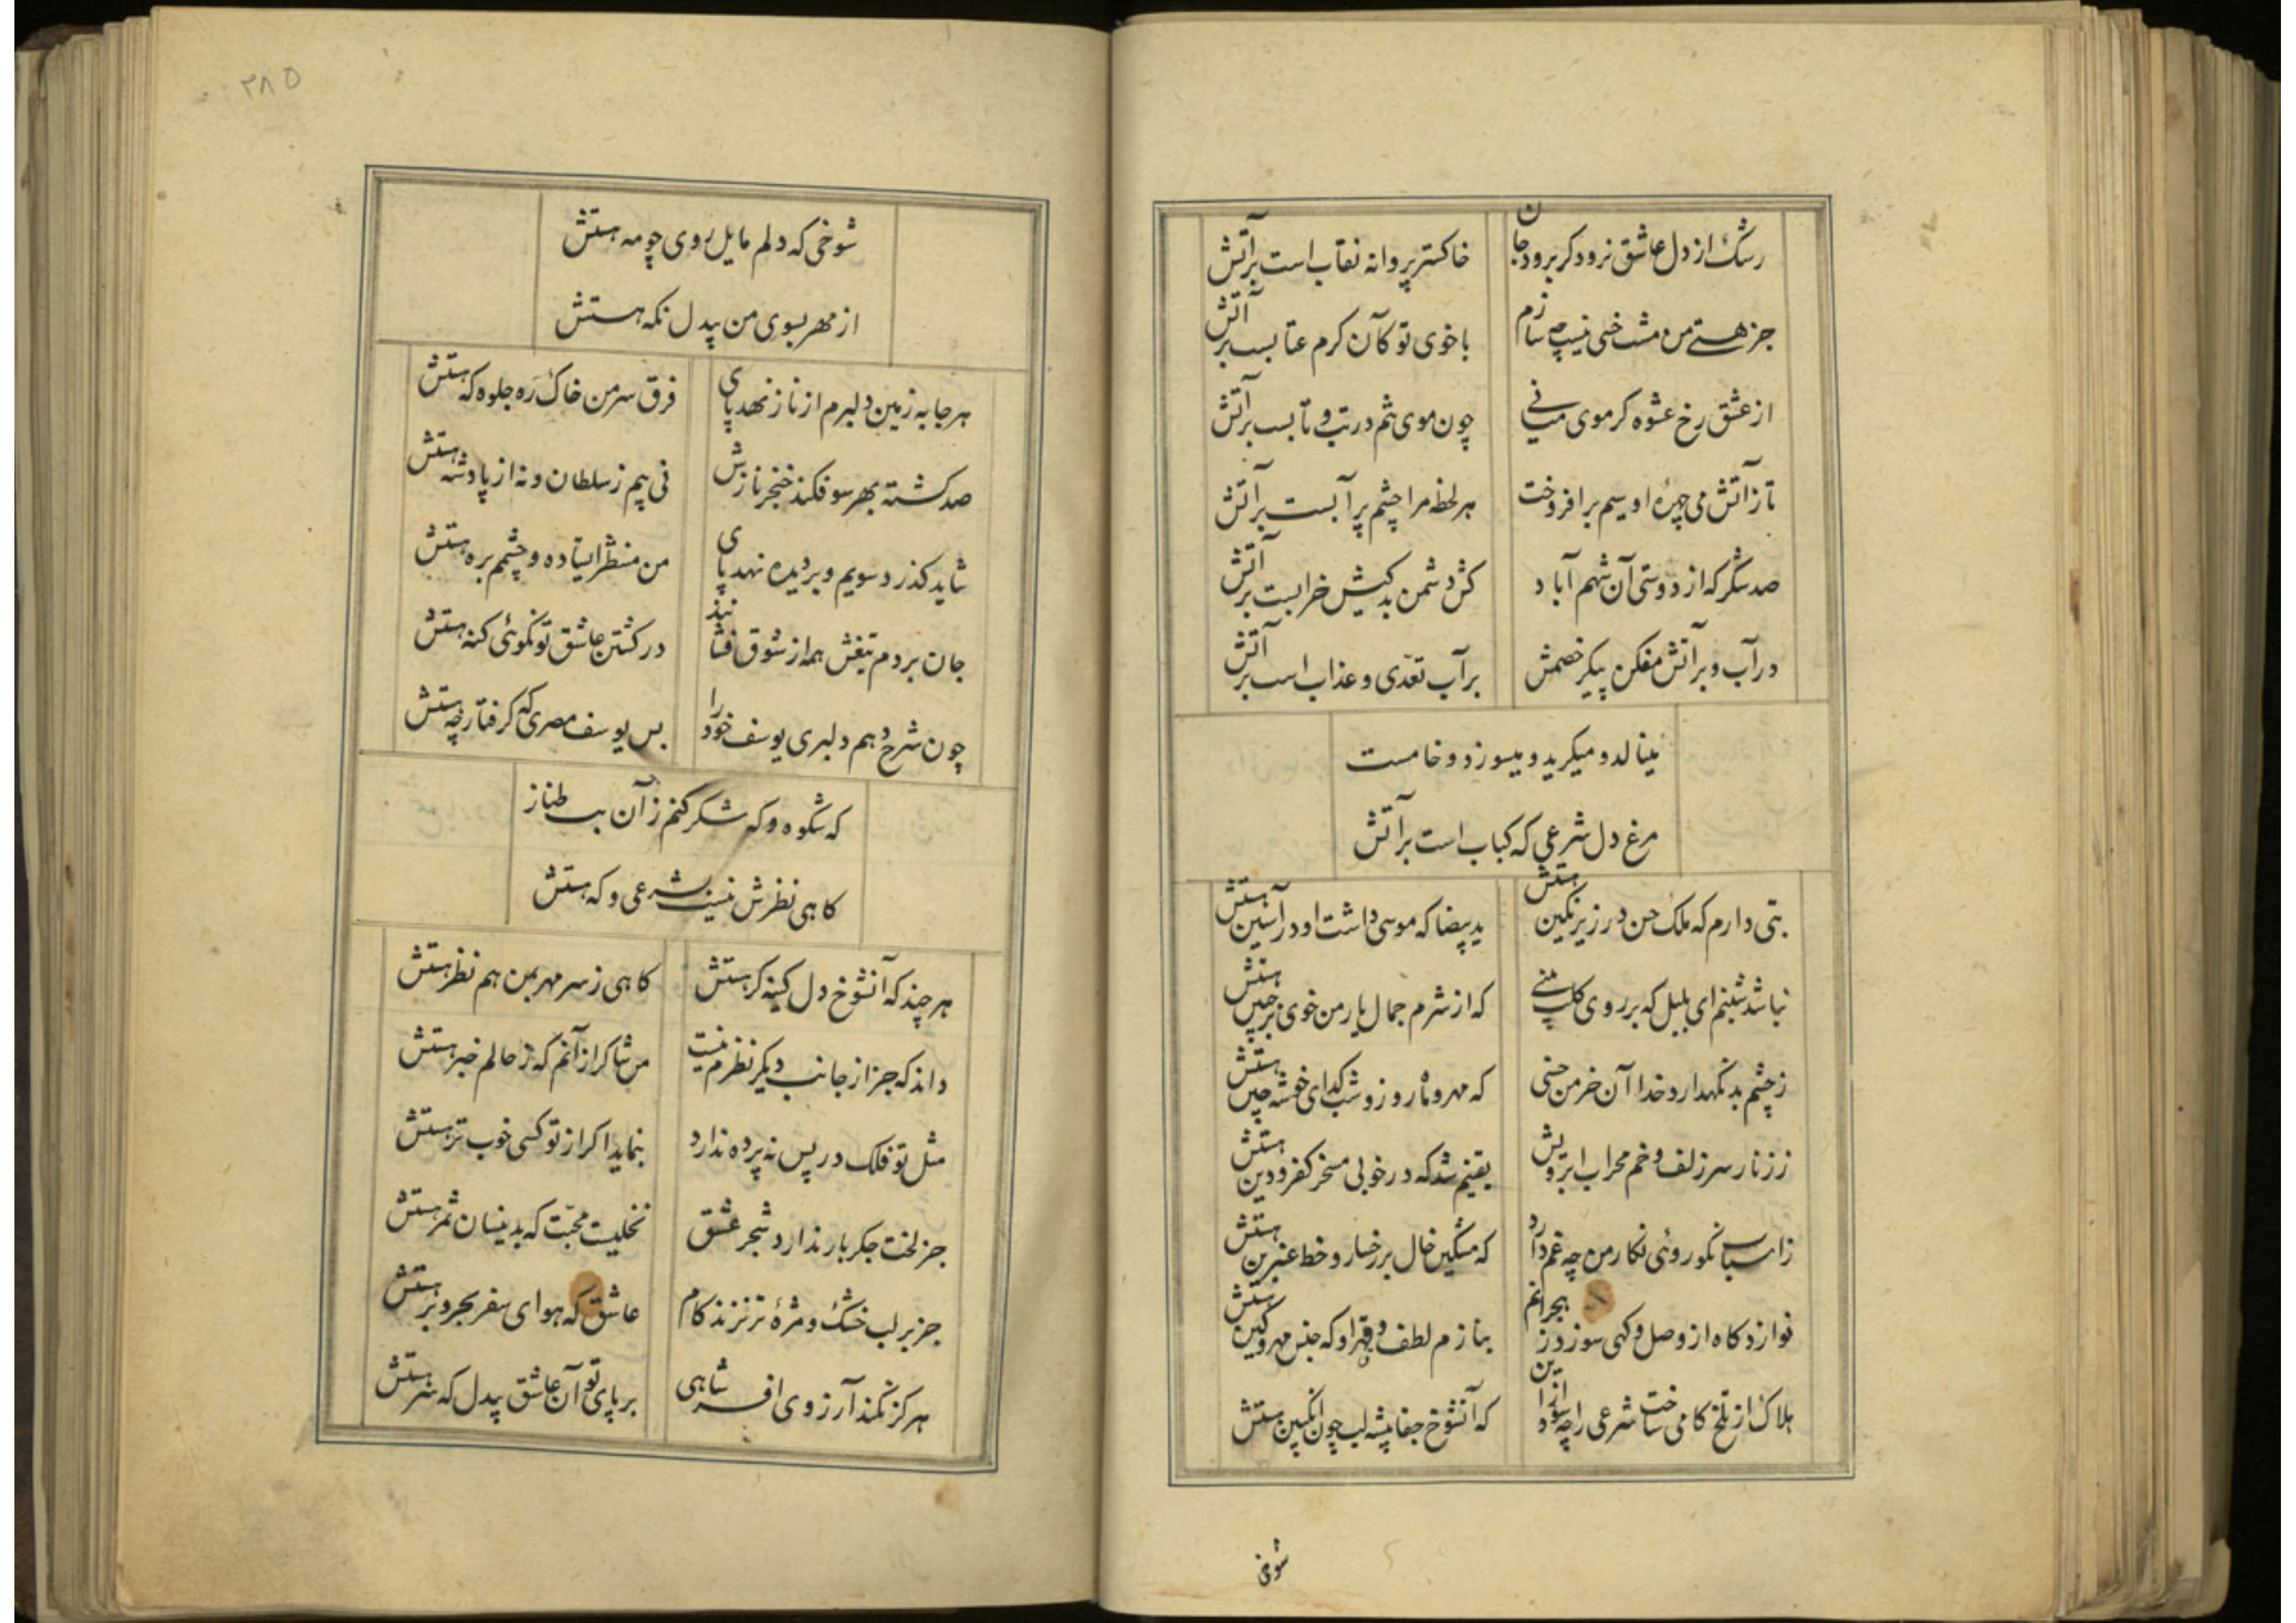 رشک از دل عاشق نرود کر برود جان خاکستر پروانه نقاب است بر آتش
جز هستی من مشت خسی نیست چه سازم با خوی تو کآن کرم عتابست بر آتش
از عشق رخ عشوه کر موی میانی چون موی تنم در تب و تابست بر آتش
تا ز آتش می چهرهٔ او سیم برافروخت هر لحظه مرا چشم پر آبست بر آتش
صد شکر که از دوستی آن شهم آباد کش دشمن بدکیش خرابست بر آتش
در آب و بر آتش مفکن پیکر خصمش بر آب تعدّی و عذاب است بر آتش
مینالد و میکرید و میسوزد و خامست
مرغ دل شرعی که کباب است بر آتش
بتی دارم که ملک حسن در زیر نکین هستش ید بیضا که موسی داشت او در آستین هستش
نباشد شبنم ای بلبل که بر روی کلت بینی که از شرم جمال یار من خوی بر جبین هستش
ز چشم بد نکهدارد خدا آن خرمن حسنی که مهر و ماه روز و شب کدای خوشه چین هستش
ز زنار سر زلف و خم محراب ابرویش یقینم شد که در خوبی مسخر کفر و دین هستش
ز اسباب نکوروئی نکار من چه غم دارد که مشکین خال بر رخسار و خط عنبرین هستش
نوازد کاه از وصل و کهی سوزد ز هجرانم بنازم لطف و قهر او که جنس مهر و کین هستش
هلاک از تلخ کامی ساخت شرعی را چه سود از این که آنشوخ جفا پیشه لب چون انکبین هستش
شوخی
۳۸۵
شوخی که دلم مایل روی چو مه هستش
از مهر بسوی من بیدل نکه هستش
هر جا به زمین دلبرم از ناز نهد پای فرق سر من خاک ره جلوه که هستش
صد کشته بهر سو فکند خنجر نازش نی بیم ز سلطان و نه از پادشه هستش
شاید کذرد سویم و بر دیده نهد پای من منتظر ایستاده و چشمم بره هستش
جان بر دم تیغش همه از شوق فشانند در کشتن عاشق تو نکوئی کنه هستش
چون شرح دهم دلبری یوسف خود را بس یوسف مصری که کرفتار چه هستش
که شکوه و که شکر کنم ز آن بت طناز
کاهی نظرش نیست بشرعی و که هستش
هر چند که آنشوخ دل کینه کر هستش کاهی ز سر مهر بمن هم نظر هستش
داند که جز از جانب دیکر نظرم نیست من شاکر از آنم که ز حالم خبر هستش
مثل تو فلک در پس نه پرده ندارد بنماید اکر از تو کسی خوب تر هستش
جز لخت جکر بار ندارد شجر عشق نخلیست محبّت که بدینسان ثمر هستش
جز بر لب خشک و مژهٔ تر نزند کام عاشق که هوای سفر بحر و بر هستش
هرکز نکند آرزوی افسر شاهی بر پای تو آن عاشق بیدل که سر هستش